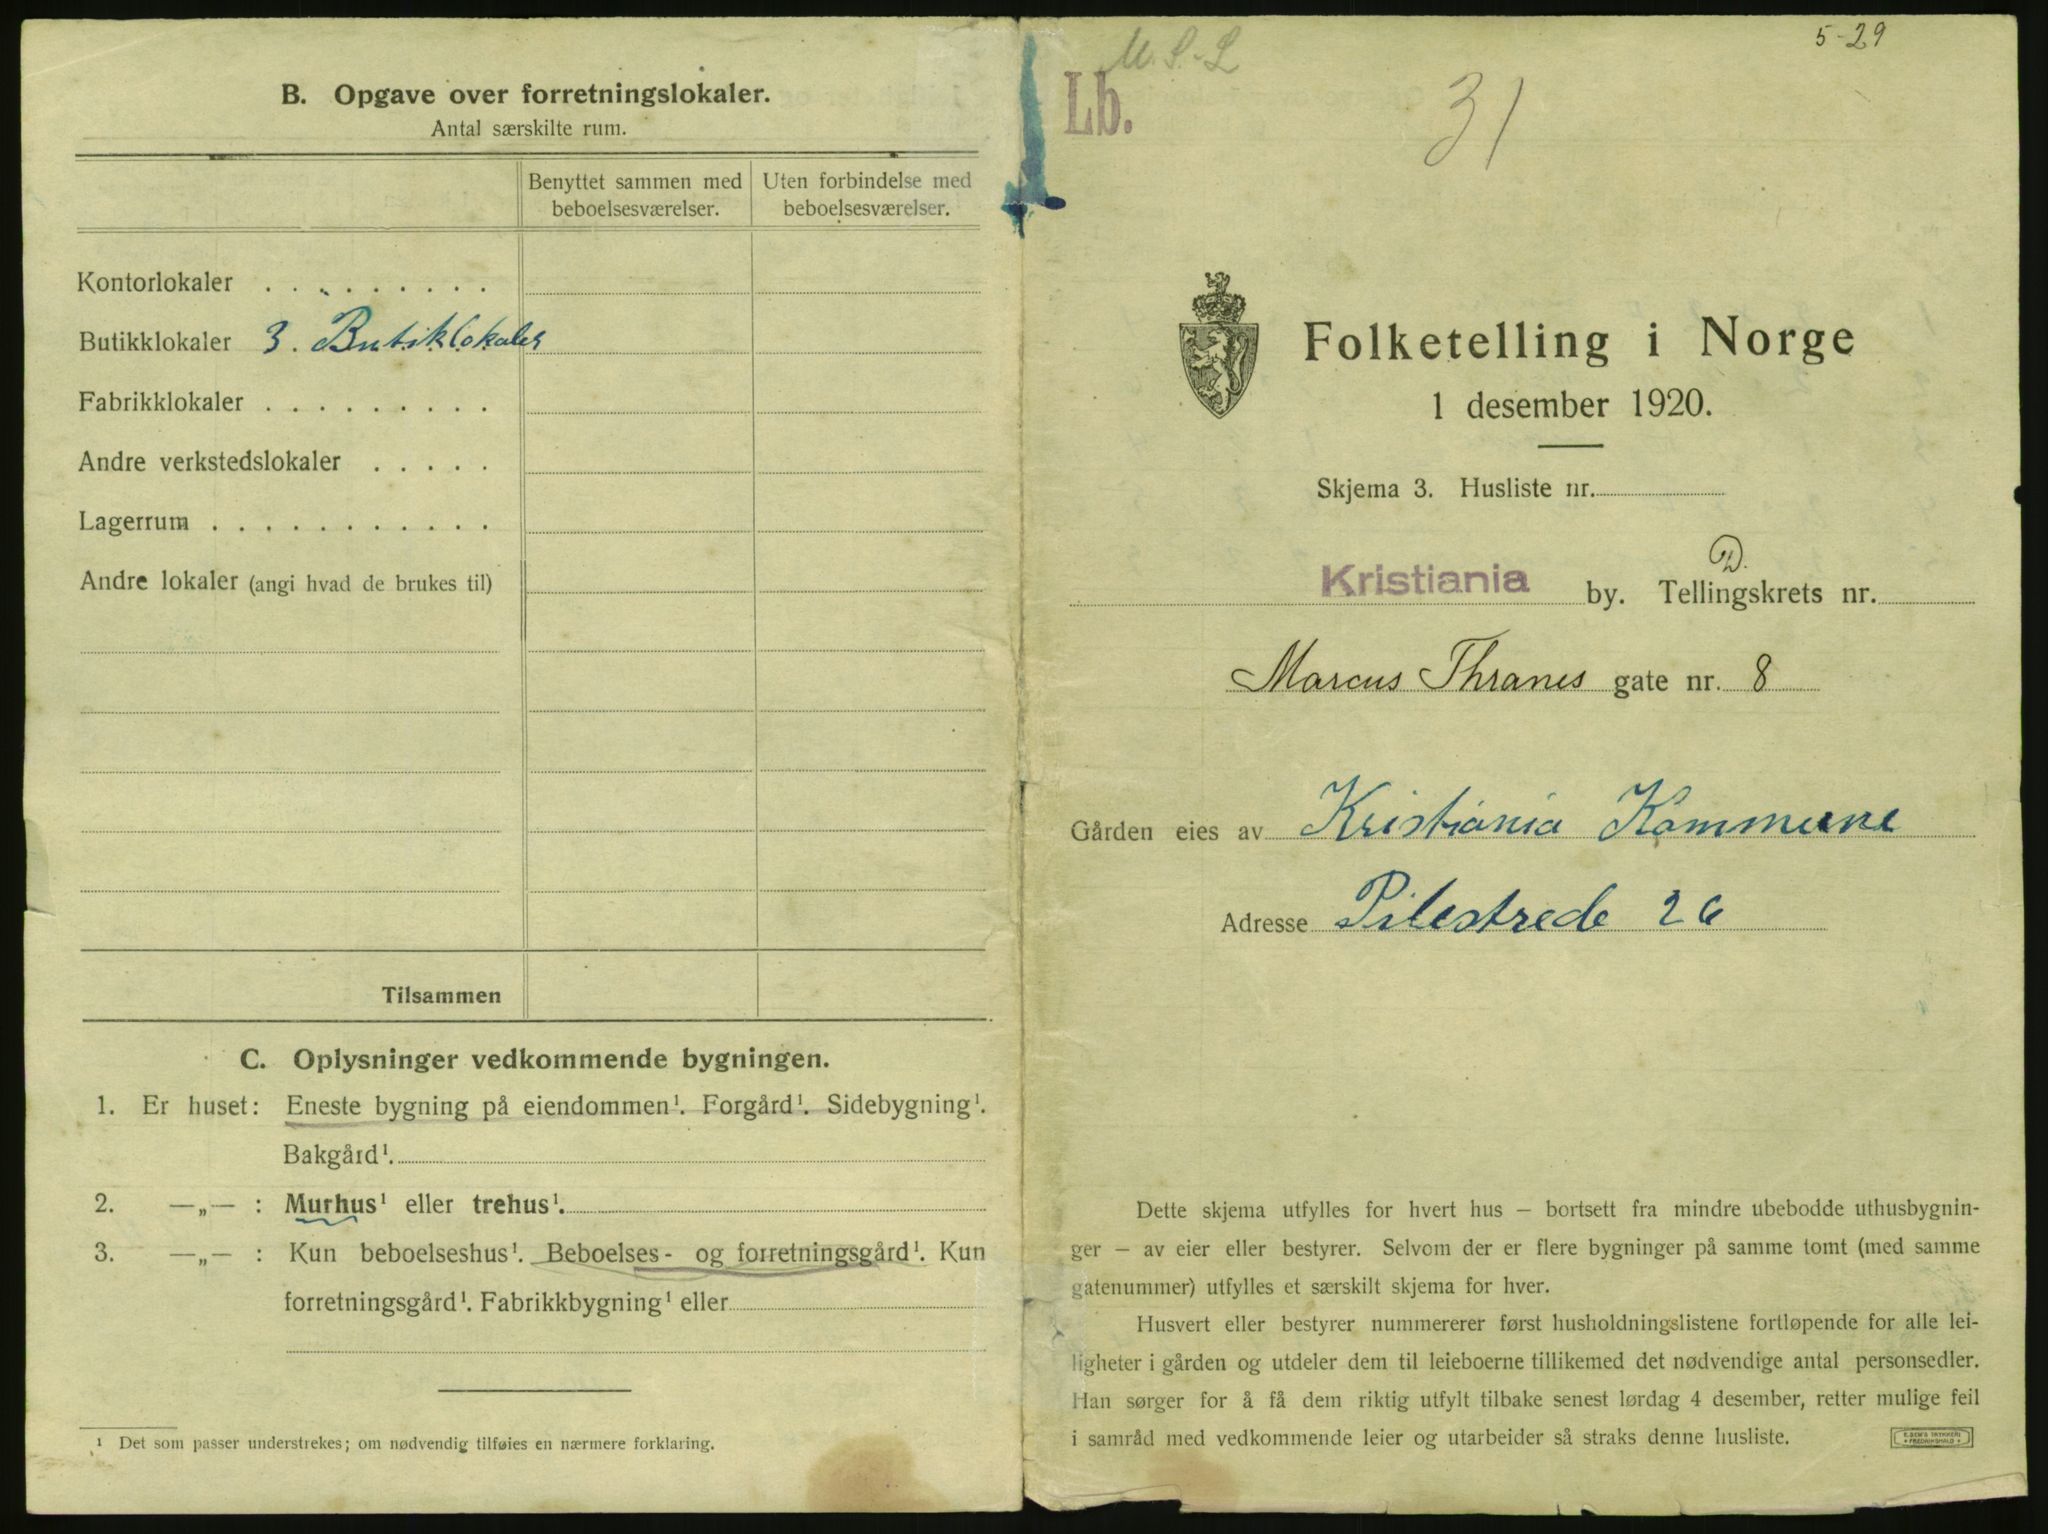 B. Opgave over forretningslokaler.
Antal særskilte rum.
Benyttet sammen med
beboelsesværelser.
Uten forbindelse med
beboelsesværelser.
Kontorlokaler . . . . . . . . .
Butikklokaler 3. Butiklokaler
Fabrikklokaler . . . . . . . . .
Andre verkstedslokaler . . . . .
Lagerrum . . . . . . . . . . . .
Andre lokaler (angi hvad de brukes til)
Tilsammen
C. Oplysninger vedkommende bygningen.
1. Er huset: Eneste bygning på eiendommen¹. Forgård¹. Sidebygning¹.
Bakgård¹.
2. —„— : Murhus¹ eller trehus¹.
3. —„— : Kun beboelseshus¹. Beboelses- og forretningsgård¹. Kun
forretningsgård¹. Fabrikkbygning¹ eller
¹ Det som passer understrekes; om nødvendig tilføies en nærmere forklaring.
5-29
M. S.-L
Lb.
31
Folketelling i Norge
1 desember 1920.
Skjema 3. Husliste nr.
D.
Kristiania by. Tellingskrets nr.
Marcus Thranes gate nr. 8
Gården eies av Kristiania Kommune
Adresse Pilestrede 26
Dette skjema utfylles for hvert hus – bortsett fra mindre ubebodde uthusbygnin-
ger – av eier eller bestyrer. Selvom der er flere bygninger på samme tomt (med samme
gatenummer) utfylles et særskilt skjema for hver.
Husvert eller bestyrer nummererer først husholdningslistene fortløpende for alle lei-
ligheter i gården og utdeler dem til leieboerne tillikemed det nødvendige antal personsedler.
Han sørger for å få dem riktig utfylt tilbake senest lørdag 4 desember, retter mulige feil
i samråd med vedkommende leier og utarbeider så straks denne husliste.
E. SEM'S TRYKKERI
FREDRIKSHALD